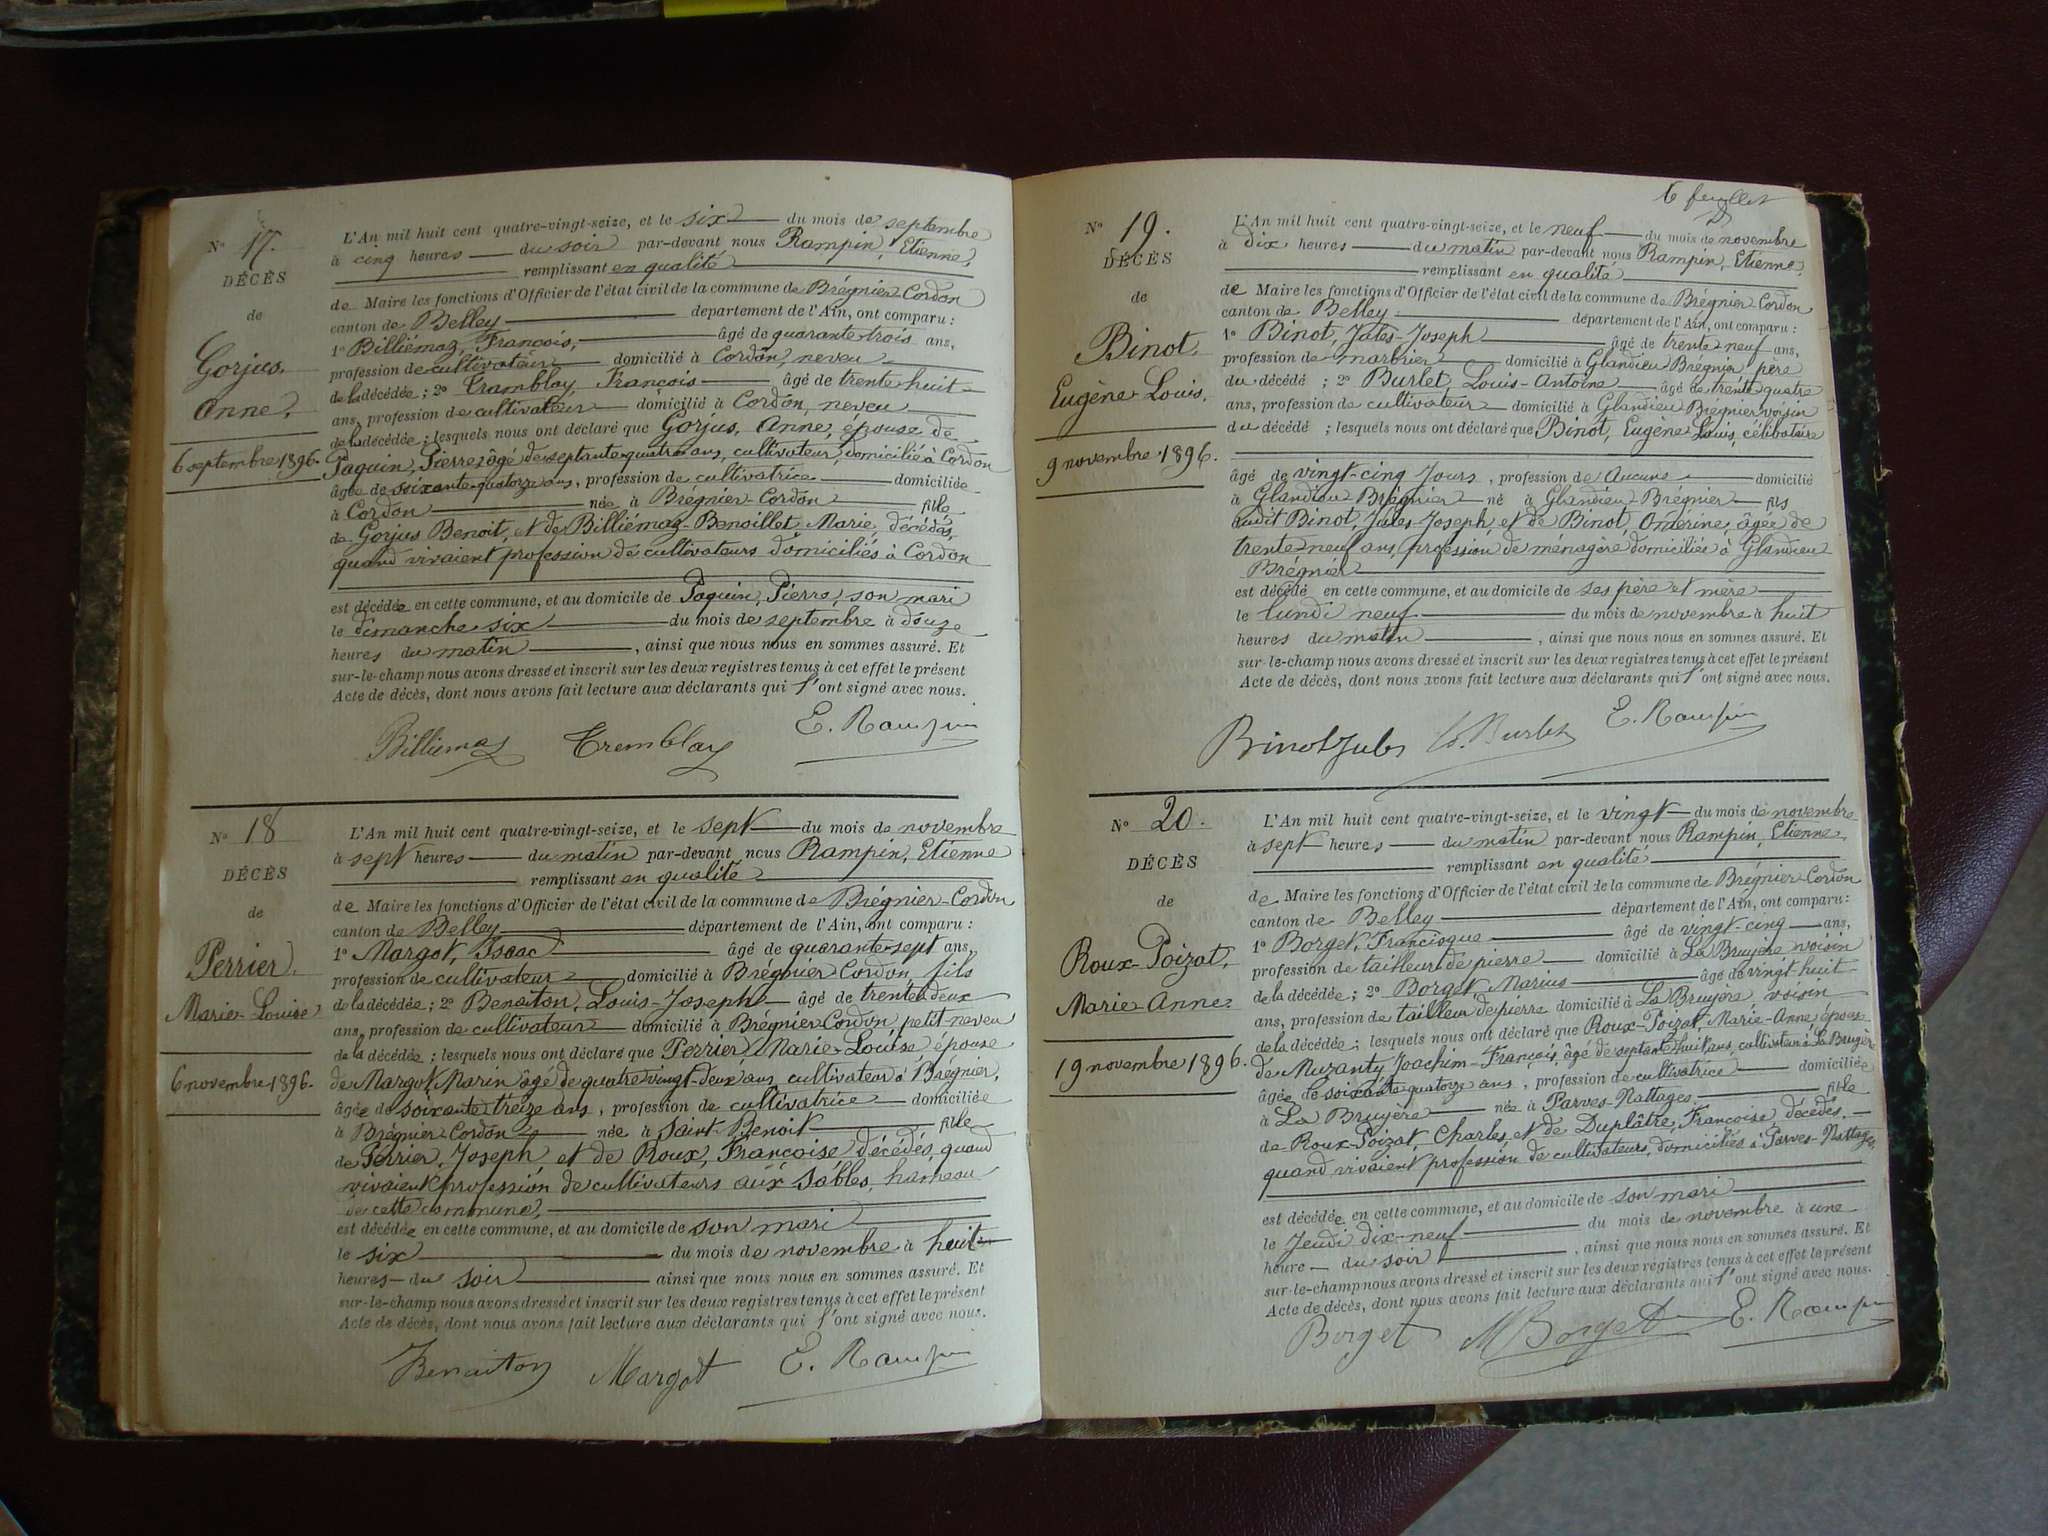 N° 17.
DÉCÈS
de
Gorjus.
Anne.
6 septembre 1896.
L'An mil huit cent quatre-vingt-seize, et le six du mois de septembre
à cinq heures du soir par-devant nous Rampin, Etienne,
remplissant en qualité
de Maire les fonctions d'Officier de l'état civil de la commune de Brégnier-Cordon
canton de Belley département de l'Ain, ont comparu :
1° Billiémaz, François, âgé de quarante-trois ans,
profession de cultivateur domicilié à Cordon, neveu
de la décédée ; 2° Tramblay, François âgé de trente huit
ans, profession de cultivateur domicilié à Cordon, neveu
de la décédée ; lesquels nous ont déclaré que Gorjus, Anne, épouse de
Paquin, Pierre, âgé de septante-quatre ans, cultivateur, domicilié à Cordon
âgée de soixante-quatorze ans, profession de cultivatrice domiciliée
à Cordon née à Brégnier-Cordon fille
de Gorjus Benoit, et de Billiémaz-Benoillet Marie, décédés,
quand vivaient profession de cultivateurs domiciliés à Cordon
est décédée en cette commune, et au domicile de Paquin, Pierre, son mari
le dimanche six du mois de septembre à douze
heures du matin , ainsi que nous nous en sommes assuré. Et
sur-le-champ nous avons dressé et inscrit sur les deux registres tenus à cet effet le présent
Acte de décès, dont nous avons fait lecture aux déclarants qui l'ont signé avec nous.
Billiemaz Tremblay E. Rampin
N° 18
DÉCÈS
de
Perrier.
Marie-Louise
6 novembre 1896.
L'An mil huit cent quatre-vingt-seize, et le sept du mois de novembre
à sept heures du matin par-devant nous Rampin, Etienne
remplissant en qualité
de Maire les fonctions d'Officier de l'état civil de la commune de Brégnier-Cordon
canton de Belley département de l'Ain, ont comparu :
1° Margot, Isaac âgé de quarante-sept ans,
profession de cultivateur domicilié à Brégnier-Cordon, fils
de la décédée ; 2° Benaiton, Louis-Joseph âgé de trente-deux
ans, profession de cultivateur domicilié à Brégnier-Cordon, petit-neveu
de la décédée ; lesquels nous ont déclaré que Perrier, Marie-Louise épouse
de Margot, Marin âgé de quatre-vingt-deux ans, cultivateur à Brégnier,
âgée de soixante-treize ans, profession de cultivatrice domiciliée
à Brégnier-Cordon née à Saint-Benoit fille
de Perrier, Joseph et de Roux, Françoise décédés, quand
vivaient profession de cultivateurs aux Sables, hameau
de cette commune,
est décédée en cette commune, et au domicile de son mari
le six du mois de novembre à huit
heures du soir ainsi que nous nous en sommes assuré. Et
sur-le-champ nous avons dressé et inscrit sur les deux registres tenus à cet effet le présent
Acte de décès, dont nous avons fait lecture aux déclarants qui l'ont signé avec nous.
Benaiton Margot E. Rampin
6 feuillet
N° 19.
DÉCÈS
de
Binot.
Eugène-Louis.
9 novembre 1896.
L'An mil huit cent quatre-vingt-seize, et le neuf du mois de novembre
à dix heures du matin par-devant nous Rampin, Etienne,
remplissant en qualité
de Maire les fonctions d'Officier de l'état civil de la commune de Brégnier-Cordon
canton de Belley département de l'Ain, ont comparu :
1° Binot, Jules-Joseph âgé de trente-neuf ans,
profession de marinier domicilié à Glandieu Brégnier père
du décédé ; 2° Burlet, Louis-Antoine âgé de trente quatre
ans, profession de cultivateur domicilié à Glandieu Brégnier voisin
du décédé ; lesquels nous ont déclaré que Binot, Eugène Louis, célibataire
âgé de vingt-cinq Jours , profession de Aucune domicilié
à Glandieu Brégnier né à Glandieu Brégnier fils
dudit Binot, Jules-Joseph, et de Binot, Omérine, âgée de
trente-neuf ans, profession de ménagère domiciliés à Glandieu
Brégnier
est décédé en cette commune, et au domicile de ses père et mère
le lundi neuf du mois de novembre à huit
heures du matin , ainsi que nous nous en sommes assuré. Et
sur-le-champ nous avons dressé et inscrit sur les deux registres tenus à cet effet le présent
Acte de décès, dont nous avons fait lecture aux déclarants qui l'ont signé avec nous.
Binot Jules Burlet E. Rampin
N° 20.
DÉCÈS
de
Roux-Poizat,
Marie-Anne.
19 novembre 1896.
L'An mil huit cent quatre-vingt-seize, et le vingt du mois de novembre
à sept heures du matin par-devant nous Rampin, Etienne,
remplissant en qualité
de Maire les fonctions d'Officier de l'état civil de la commune de Brégnier-Cordon
canton de Belley département de l'Ain, ont comparu :
1° Borget, Francisque âgé de vingt-cinq ans,
profession de tailleur de pierre domicilié à La Bruyère voisin
de la décédée ; 2° Borget Marius âgé de vingt-huit
ans, profession de tailleur de pierre domicilié à La Bruyère, voisin
de la décédée ; lesquels nous ont déclaré que Roux-Poizat, Marie-Anne épouse
de Muzanty Joachim-François, âgé de septante huit ans, cultivateur à La Bruyère
âgée de soixante quatorze ans , profession de cultivatrice domiciliée
à La Bruyère née à Parves-Nattages fille
de Roux-Poizat, Charles, et de Duplâtre, Françoise, décédés,
quand vivaient profession de cultivateurs, domiciliés à Parves-Nattages
est décédée en cette commune, et au domicile de son mari
le Jeudi dix-neuf du mois de novembre à une
heure du soir , ainsi que nous nous en sommes assuré. Et
sur-le-champ nous avons dressé et inscrit sur les deux registres tenus à cet effet le présent
Acte de décès, dont nous avons fait lecture aux déclarants qui l'ont signé avec nous.
Borget M Borget E. Rampin